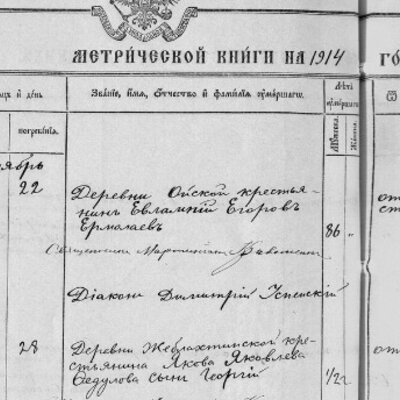 МЕТРИЧЕСКОЙ КНИГИ НА 1914 ГО
ѣсяцъ и день.
Званіе, имя, отчество и фамилія умершаго.
Лѣта умершаго.
погребенія.
Мужеска.
Женска.
ябрь
22
Деревни Ойской крестья-
нинъ Евлампій Егоровъ
Ермолаевъ
86 "
Священникъ
Діаконъ Димитрій Успенскій
28
Деревни Жеблахтинской кре-
стьянина Якова Яковлева
Ѳедулова сынъ Георгій
1/2 г.